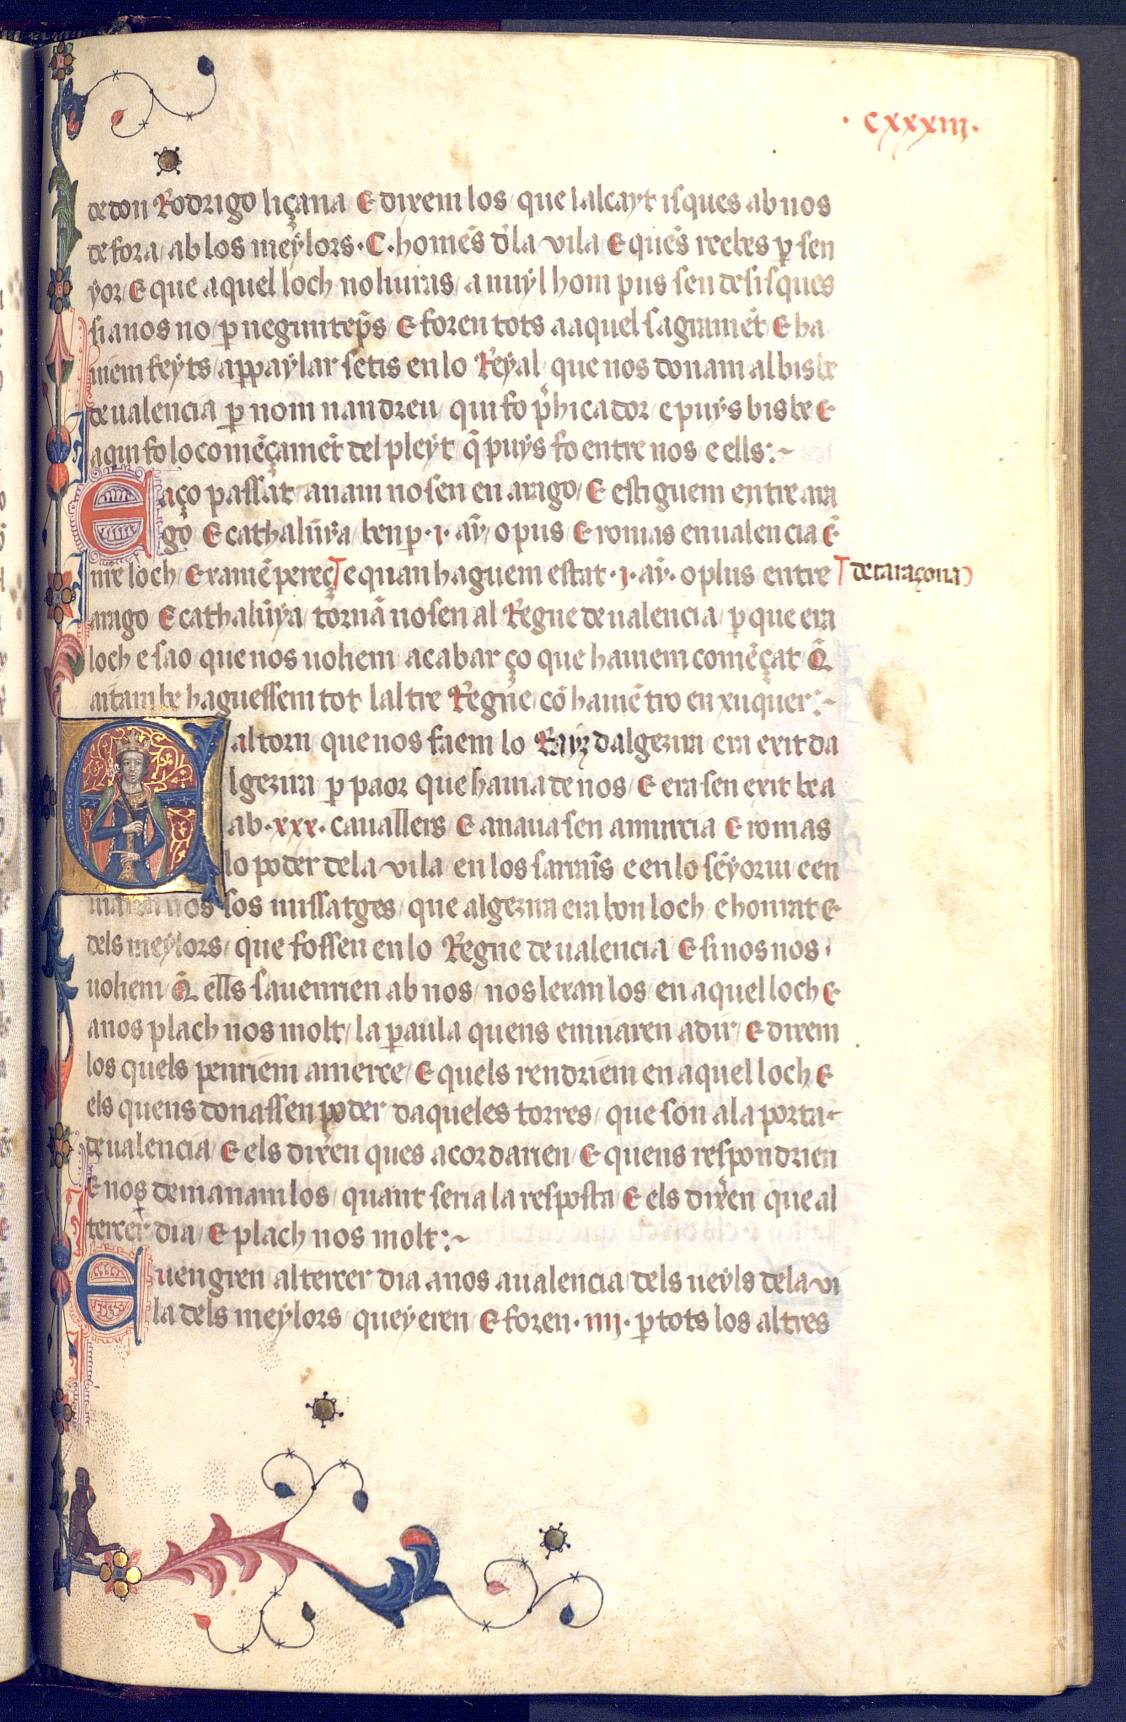 · Cxxxiij ·
de don Rodrigo liçana E dixem los / que lalcayt isques ab nos
de fora / ab los meylors · C · homẽs dla vila E quẽs reebes p sen
yor / E que aquel loch no liuras / a nuyl hom pus sen desisques
si a nos no / p negun temps E foren tots a aquel sagramẽt E ha
uiem feyts appaylar setis en lo Reyal / que nos donam al bisbe
de ualencia p nom nandreu / qui fo phicador / e puys bisbe E
aqui fo lo comẽçamẽt del pleyt q̃ puys fo entre nos e ells :~
E aço passat anam nosen en arago / E estiguem entre ara
go E cathalũya / ben p · i · añ / o pus E romas en ualencia ẽ
nre loch / Examẽ pereç e quan haguem estat · j · añ · o plus entre
de taraçona
arago E cathalũya / tornã nosen al Regne de ualencia / p que era
loch e sao que nos uoliem acabar ço que hauiem comẽçat Q̃
aitambe haguessem tot laltre Regne / cõ hauiẽ tro en xuquer :~
E al torn que nos faem lo Rayz dalgezira era exit da
lgezira p paor que hauia de nos / E era sen exit be a
ab · xxx · cauallers E anaua sen a murcia E romas
lo poder dela vila en los sarraĩs e en lo sẽyoriu e en
nos sos missatges / que algezira era bon loch e honrat E
dels meylors / que fossen en lo Regne de ualencia E si nos nos
uoliem Q̃ ells sauenrien ab nos / nos lexan los en aquel loch E
a nos plach nos molt / la paula quens enuiaren a dir / E dixem
los quels penriem a merce / E quels rendriem en aquel loch E
els quens donassen poder daqueles torres / que son a la porta
de ualencia / E els dixen ques acordarien E quens respondrien
E nos demanam los / quant seria la resposta E els dixen que al
tercer dia / E plach nos molt :~
E uengren al tercer dia a nos a ualencia dels ueyls dela vi
la dels meylors queyeren E foren · iiij · p tots los altres